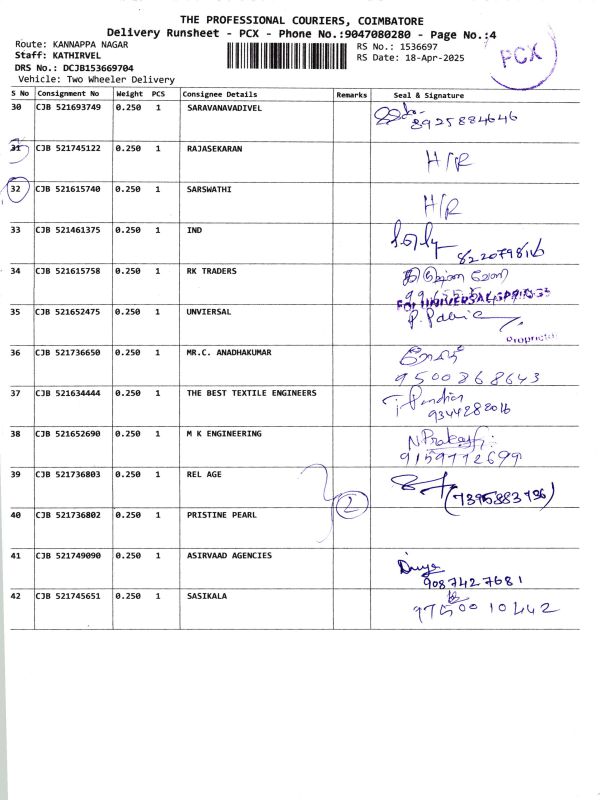 THE PROFESSIONAL COURIERS, COIMBATORE
Delivery Runsheet - PCX - Phone No.:9047080280 - Page No.:4
Route: KANNAPPA NAGAR
RS No.: 1536697
Staff: KATHIRVEL
RS Date: 18-Apr-2025
PCX
DRS No.: DCJB153669704
Vehicle: Two Wheeler Delivery
S No Consignment No Weight PCS Consignee Details Remarks Seal & Signature
30 CJB 521693749 0.250 1 SARAVANAVADIVEL
8925884646
31 CJB 521745122 0.250 1 RAJASEKARAN H/R
32 CJB 521615740 0.250 1 SARSWATHI H/R
33 CJB 521461375 0.250 1 IND
34 CJB 521615758 0.250 1 RK TRADERS
35 CJB 521652475 0.250 1 UNVIERSAL
FOR UNIVERSAL
36 CJB 521736650 0.250 1 MR.C. ANADHAKUMAR
9500868643
37 CJB 521634444 0.250 1 THE BEST TEXTILE ENGINEERS
9344282016
38 CJB 521652690 0.250 1 M K ENGINEERING N Prakash
9159772699
39 CJB 521736803 0.250 1 REL AGE
2 (7395883736)
40 CJB 521736802 0.250 1 PRISTINE PEARL
41 CJB 521749090 0.250 1 ASIRVAAD AGENCIES Divya
9087427681
42 CJB 521745651 0.250 1 SASIKALA
9750010442